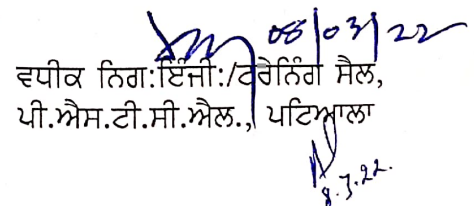 08/03/22
ਵਧੀਕ ਨਿਗ:ਇੰਜੀ:/ਟਰੇਨਿੰਗ ਸੈਲ,
ਪੀ.ਐਸ.ਟੀ.ਸੀ.ਐਲ., ਪਟਿਆਲਾ
8.3.22.